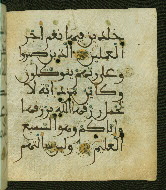 خلدين فيها نعم اجر
العملين الذين صبروا
وعلى ربهم يتوكلون
وكاين من دابة لا
تحمل رزقها الله يرزقها
واياكم وهو السميع
العليم ولين سالتهم